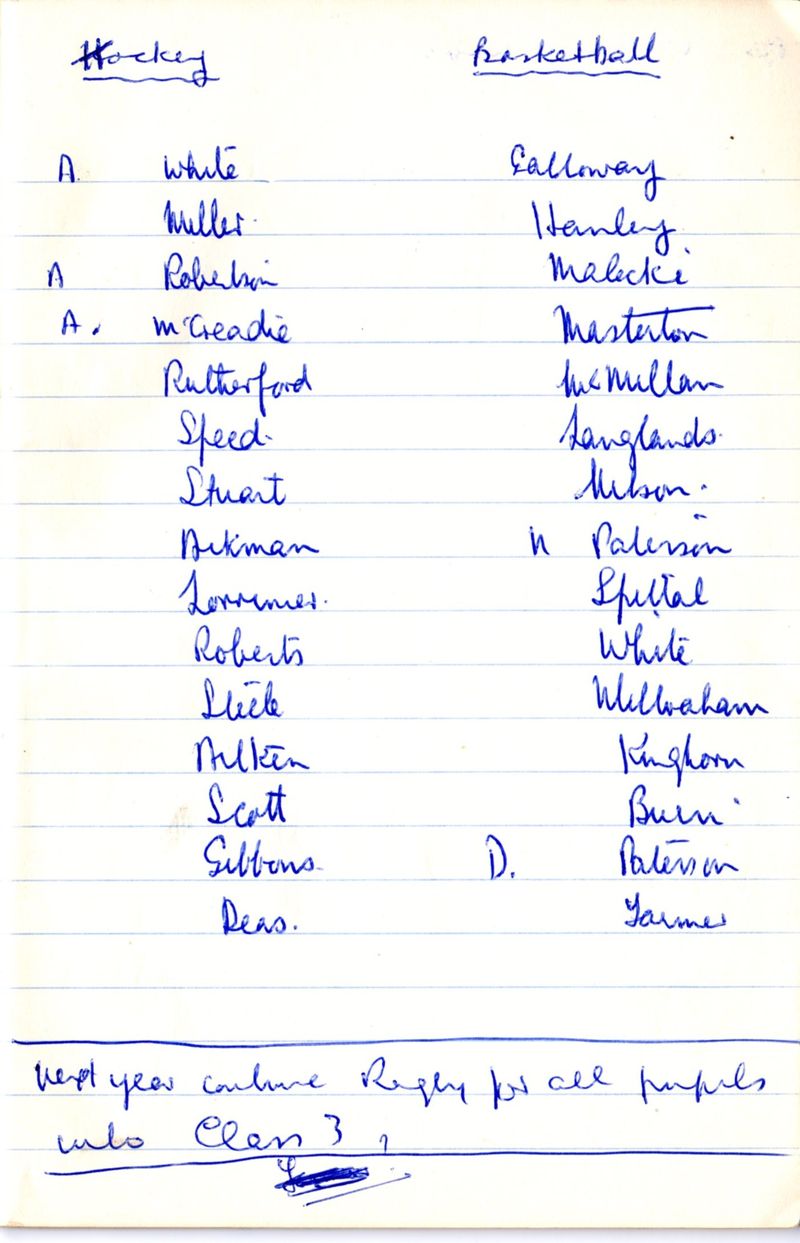 Hockey Basketball
A. White Galloway
Miller. Hanley
A Robertson Malecki
A. McCreadie Masterton
Rutherford McMillan
Speed. Langlands.
Stuart Nelson.
Aikman N Paterson
Lorrimer. Spittal
Roberts White
Steele
Aitken Kinghorn
Scott Burn
Gibbons. D. Paterson
Deas. Farmer
Next year continue Rugby for all pupils
into Class 3